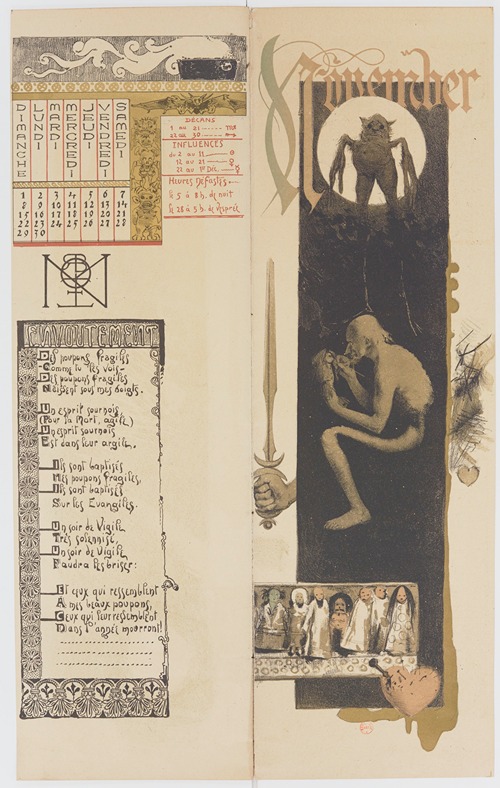 November
DIMANCHE
LUNDI
MARDI
MERCREDI
JEUDI
VENDREDI
SAMEDI
1 2 3 4 5 6 7
8 9 10 11 12 13 14
15 16 17 18 19 20 21
22 23 24 25 26 27 28
29 30
DÉCANS
1 au 21
22 au 30
INFLUENCES
du 2 au 11
12 au 21
22 au 1er Déc.
HEURES NÉFASTES
le 5 à 8 h. de nuit
le 28 à 5 h. de Vesprée
ENVOUTEMENT
Des poupons fragiles
-Comme tu les vois-
Des poupons fragiles
Naissent sous mes doigts.
Un esprit sournois
(Pour la Mort, agile)
Un esprit sournois
Est dans leur argile.
Ils sont baptisés
Mes poupons fragiles,
Ils sont baptisés
Sur les Evangiles.
Un soir de Vigile
Très solennisé,
Un soir de Vigile
Faudra les briser:
Et ceux qui ressemblent
A mes beaux poupons,
Ceux qui leur ressemblent
Dans l'année mourront!